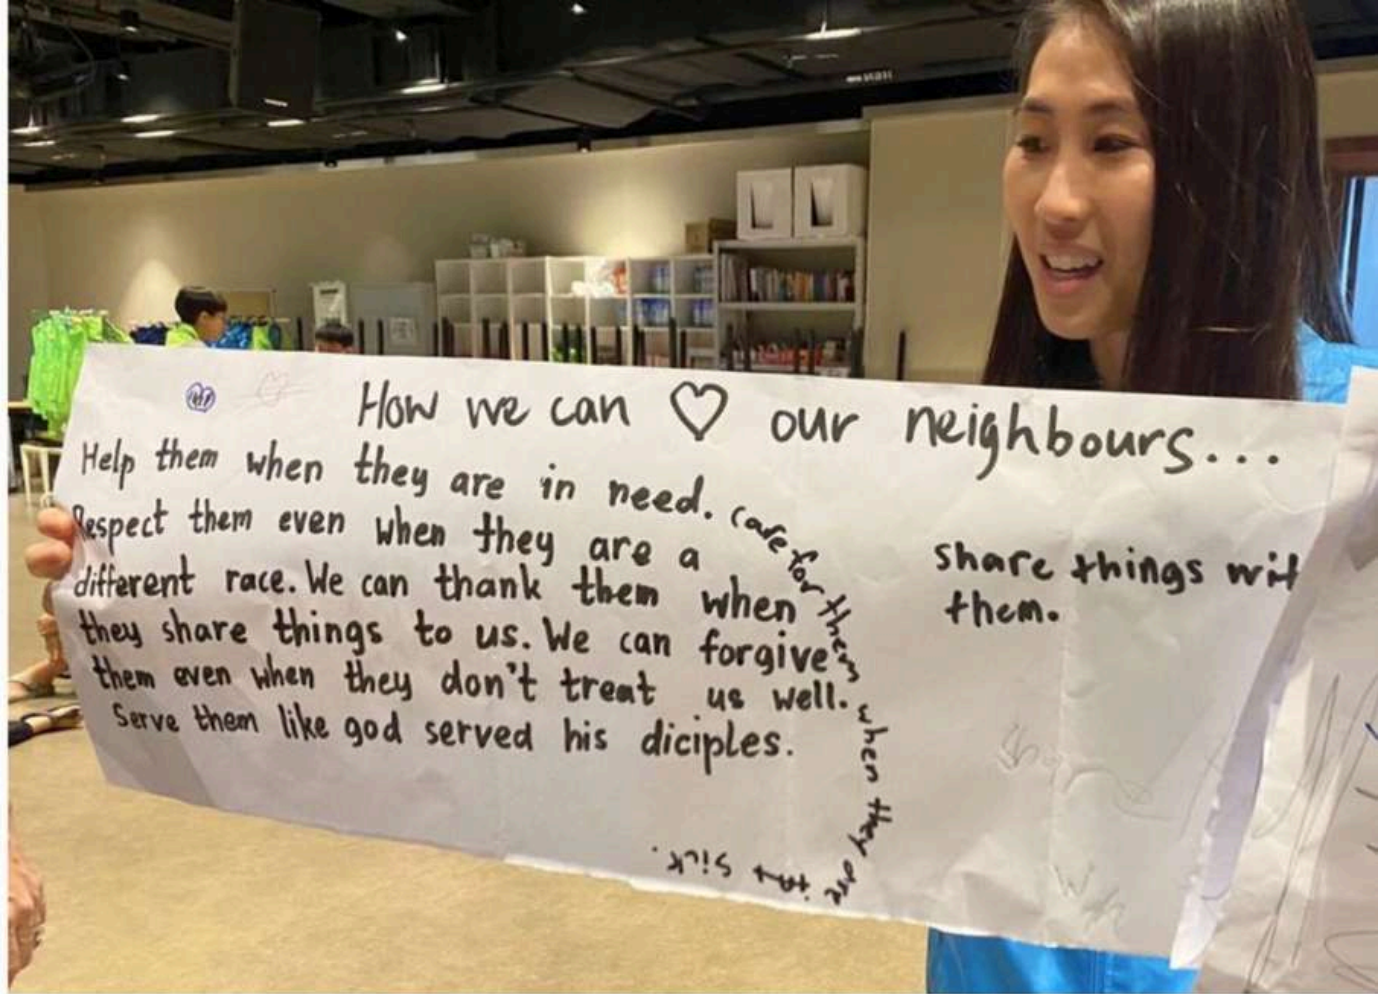 How we can ♡ our neighbours...
Help them when they are in need.
Respect them even when they are a
different race. We can thank them when
they share things to us. We can forgive
them even when they don't treat us well.
Serve them like god served his diciples.
care for them when they are sick.
share things wit
them.